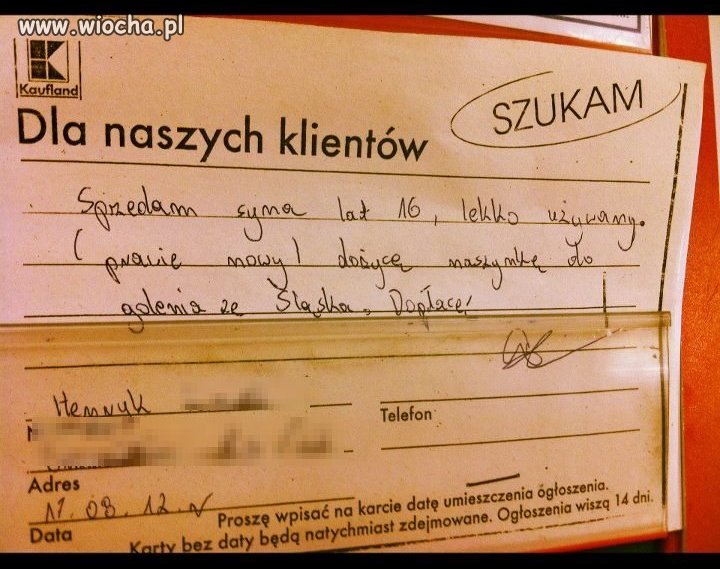 www.wiocha.pl
Kaufland
SZUKAM
Dla naszych klientów
Sprzedam syna lat 16, lekko używany.
(prawie nowy) dożycę maszynkę do
golenia ze Śląska. Dopłacę!
Henryk
Telefon
Adres
17.08.12.r
Data
Proszę wpisać na karcie datę umieszczenia ogłoszenia.
Karty bez daty będą natychmiast zdejmowane. Ogłoszenia wiszą 14 dni.